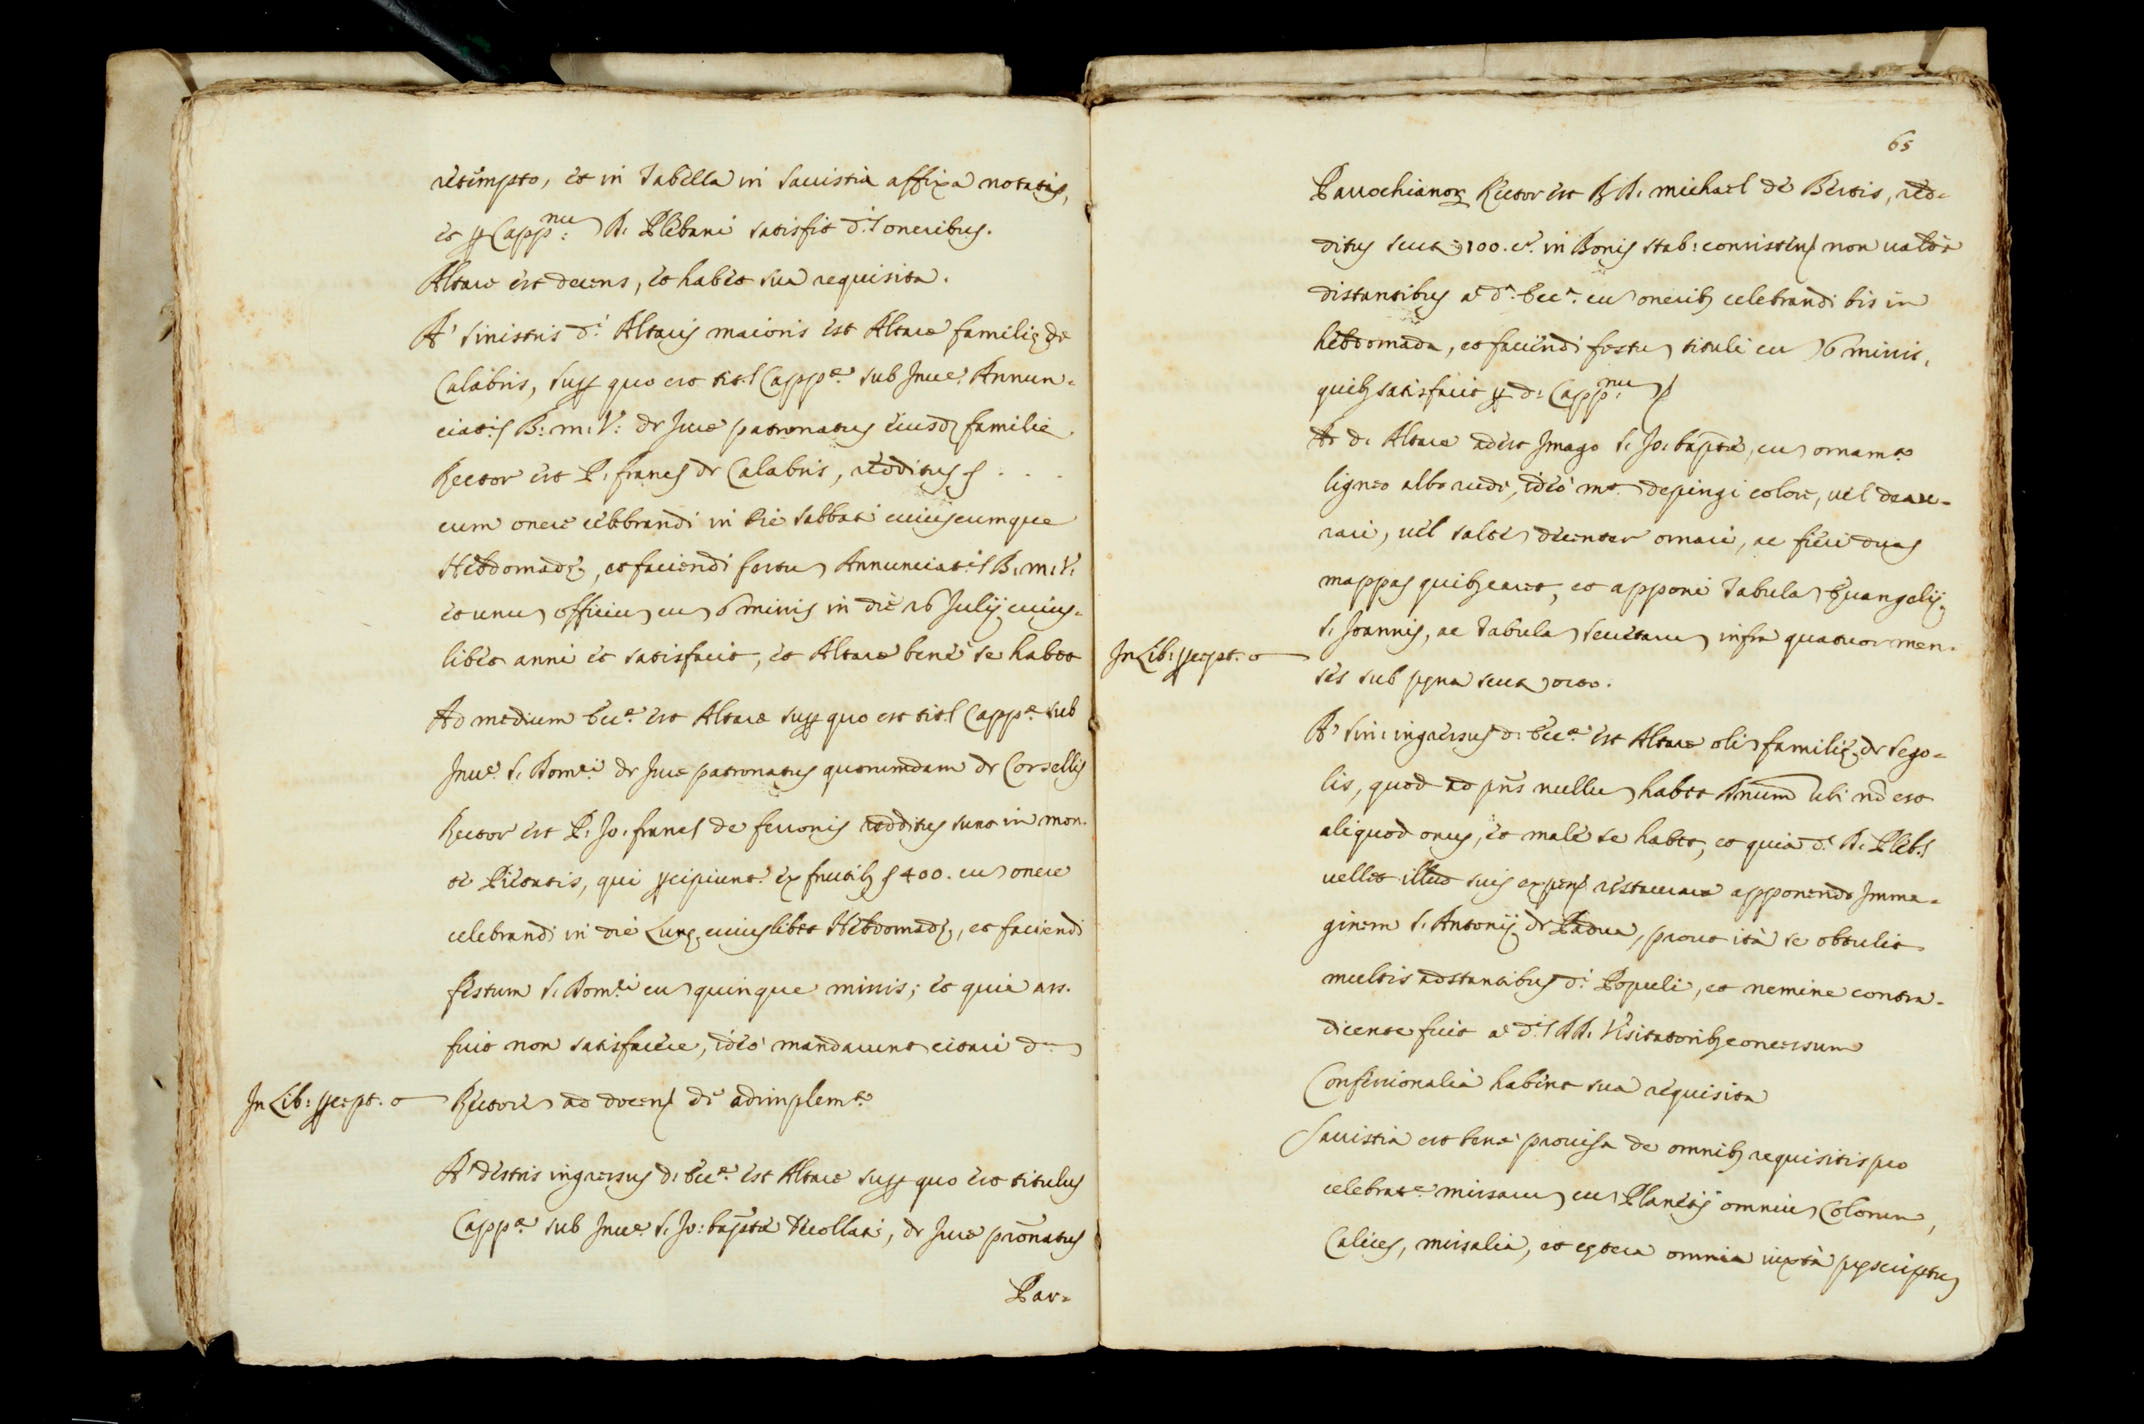 retempto, et in Tabella in Sacristia affixa notatis,
et p Capp.num R. Plebani satisfit d.is oneribus.
Altare est decens, et habet sua requisita.
A' sinistris d.i Altaris maioris est Altare familię de
Calabris, supr quo est tit.s Capp.e sub Inue. Annun=
ciat.is B: m: V: de Iure patronatus eiusd familie.
Rector est P. franc.s de Calabris, redditus s . . .
cum onere celebrandi in die Sabbati cuiuscumque
Hebdomadę, et faciendi festu Annunciat.is B. m. V.
et unu officiu cu 6 missis in die 26 Julij cuius=
libet anni et satisfacit, et Altare bene se habet
Ad medium Ecc.e est Altare supr quo est tit.s Capp.e sub
Inue. S. Dom.ci de Iure patronatus quorumdam de Corsellis
Rector est P. Jo. franc.s de ferronis redditus sunt in mon.
te Pietatis, qui pcipiunt. ex fructib s 400. cu onere
celebrandi in die Lunę cuiuslibet Hebdomadę, et faciendi
festum S. Dom.ci cu quinque missis; et quia ass.
fuit non satisfacere, ideo' mandarunt citari d.m
In Lib: pcept. Rectore ad docend de adimplem.to
A' dextris ingressus d. Ecc.e est Altare supr quo est titulus
Capp.e sub Inue. S. Jo: bapte Decollati, de Iure pronatus
Par=
65
Parrochianor Rector est R D. michael de Bertis, red=
ditus scuta 100. et. in Bonis stab: consisten non ualde
distantibus a' d.a Ecc.a cu onerib celebrandi bis in
hebdomada, et faciendi festu tituli cu 6 missis,
quib satisfacit p d. Capp.num
Ad d. Altare adest Imago S. Jo. bapte, cu ornam.to
ligneo albo rudi, ideo' m.t depingi colore, uel deau=
rari, uel salte decenter ornari, ac fieri duas
mappas quib caret, et apponi Tabula Euangelij
S. Joannis, ac Tabula Secretaru infra quatuor men=
In Lib: pcept. ses sub pęna scuta octo.
A' Sin: ingressus d. Ecc.e est Altare oli familię de Sego=
lis, quod ad pns nullu habet Dnum ubi no est
aliquod onus, et male se habet, et quia d.s R. Pleb.s
uellet illud suis expens restaurare apponendo Imma=
ginem S. Antonij de Padua, prout ita se obtulit
multis adstantibus d.i Populi, et nemine contra=
dicente fuit a' d.is RR. Visitatorib concessum
Confessionalia habent sua requisita
Sacristia est bene prouisa de omnib requisitis pro
celebrat.e missaru cu Planetis omniu Colorum,
Calices, missalia, et cętera omnia iuxta pręscriptu